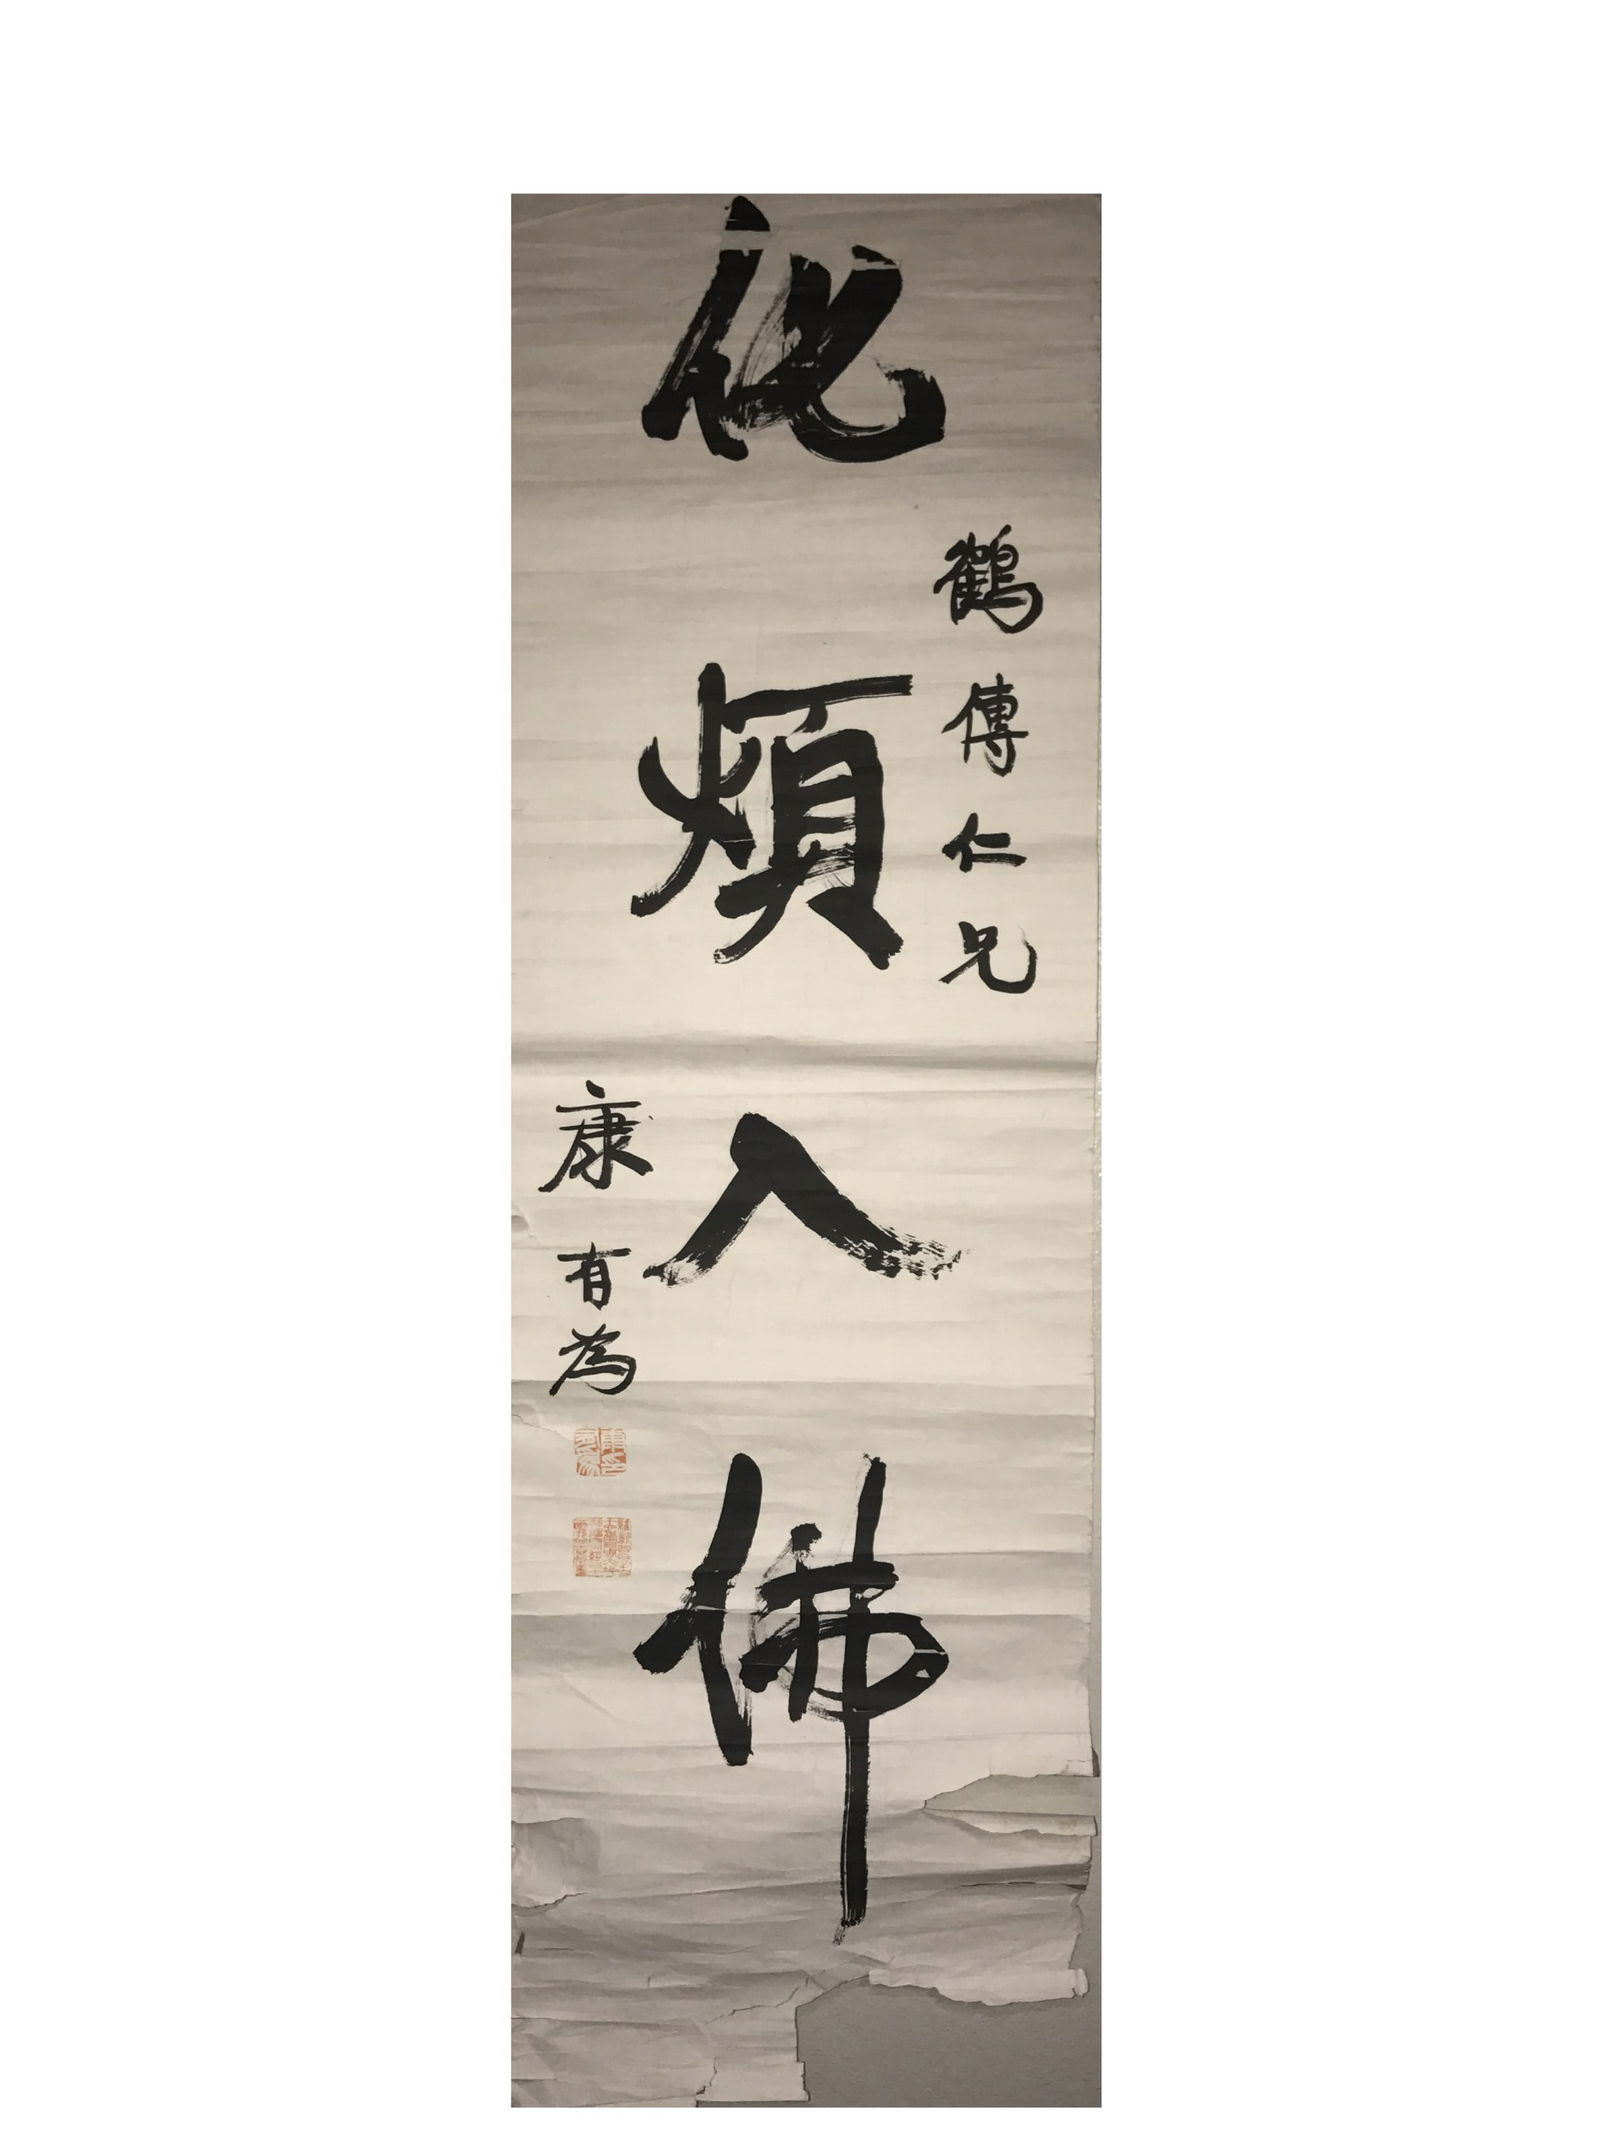 化煩入佛
鶴傳仁兄
康有為